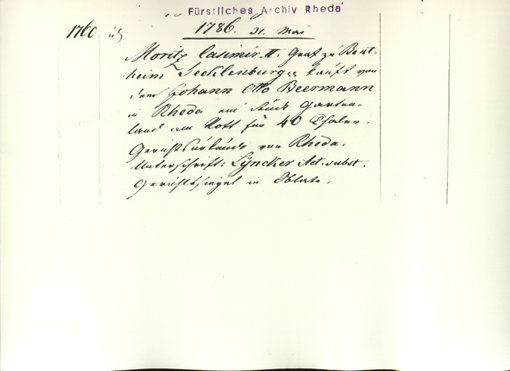 Fürstliches Archiv Rheda
1760
1786. 21. Mai
Moritz Casimir II. Graf zu Bent-
heim Tecklenburg kauft von
dem Johann Otto Beermann
in Rheda ein Stück Garten-
land am Rott für 40 Thaler.
Gerichtsurkunde von Rheda.
Unterschrift: Lyncker Act. subst.
Gerichtssiegel in Oblate.